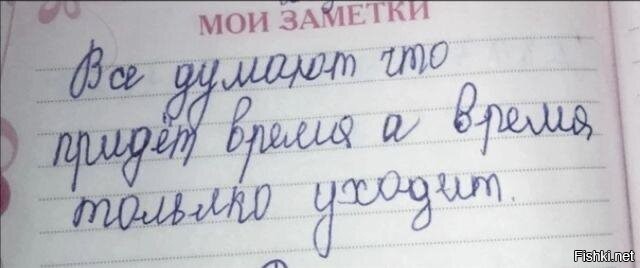 МОИ ЗАМЕТКИ
Все думают что
придёт время а время
только уходит.
Fishki.net